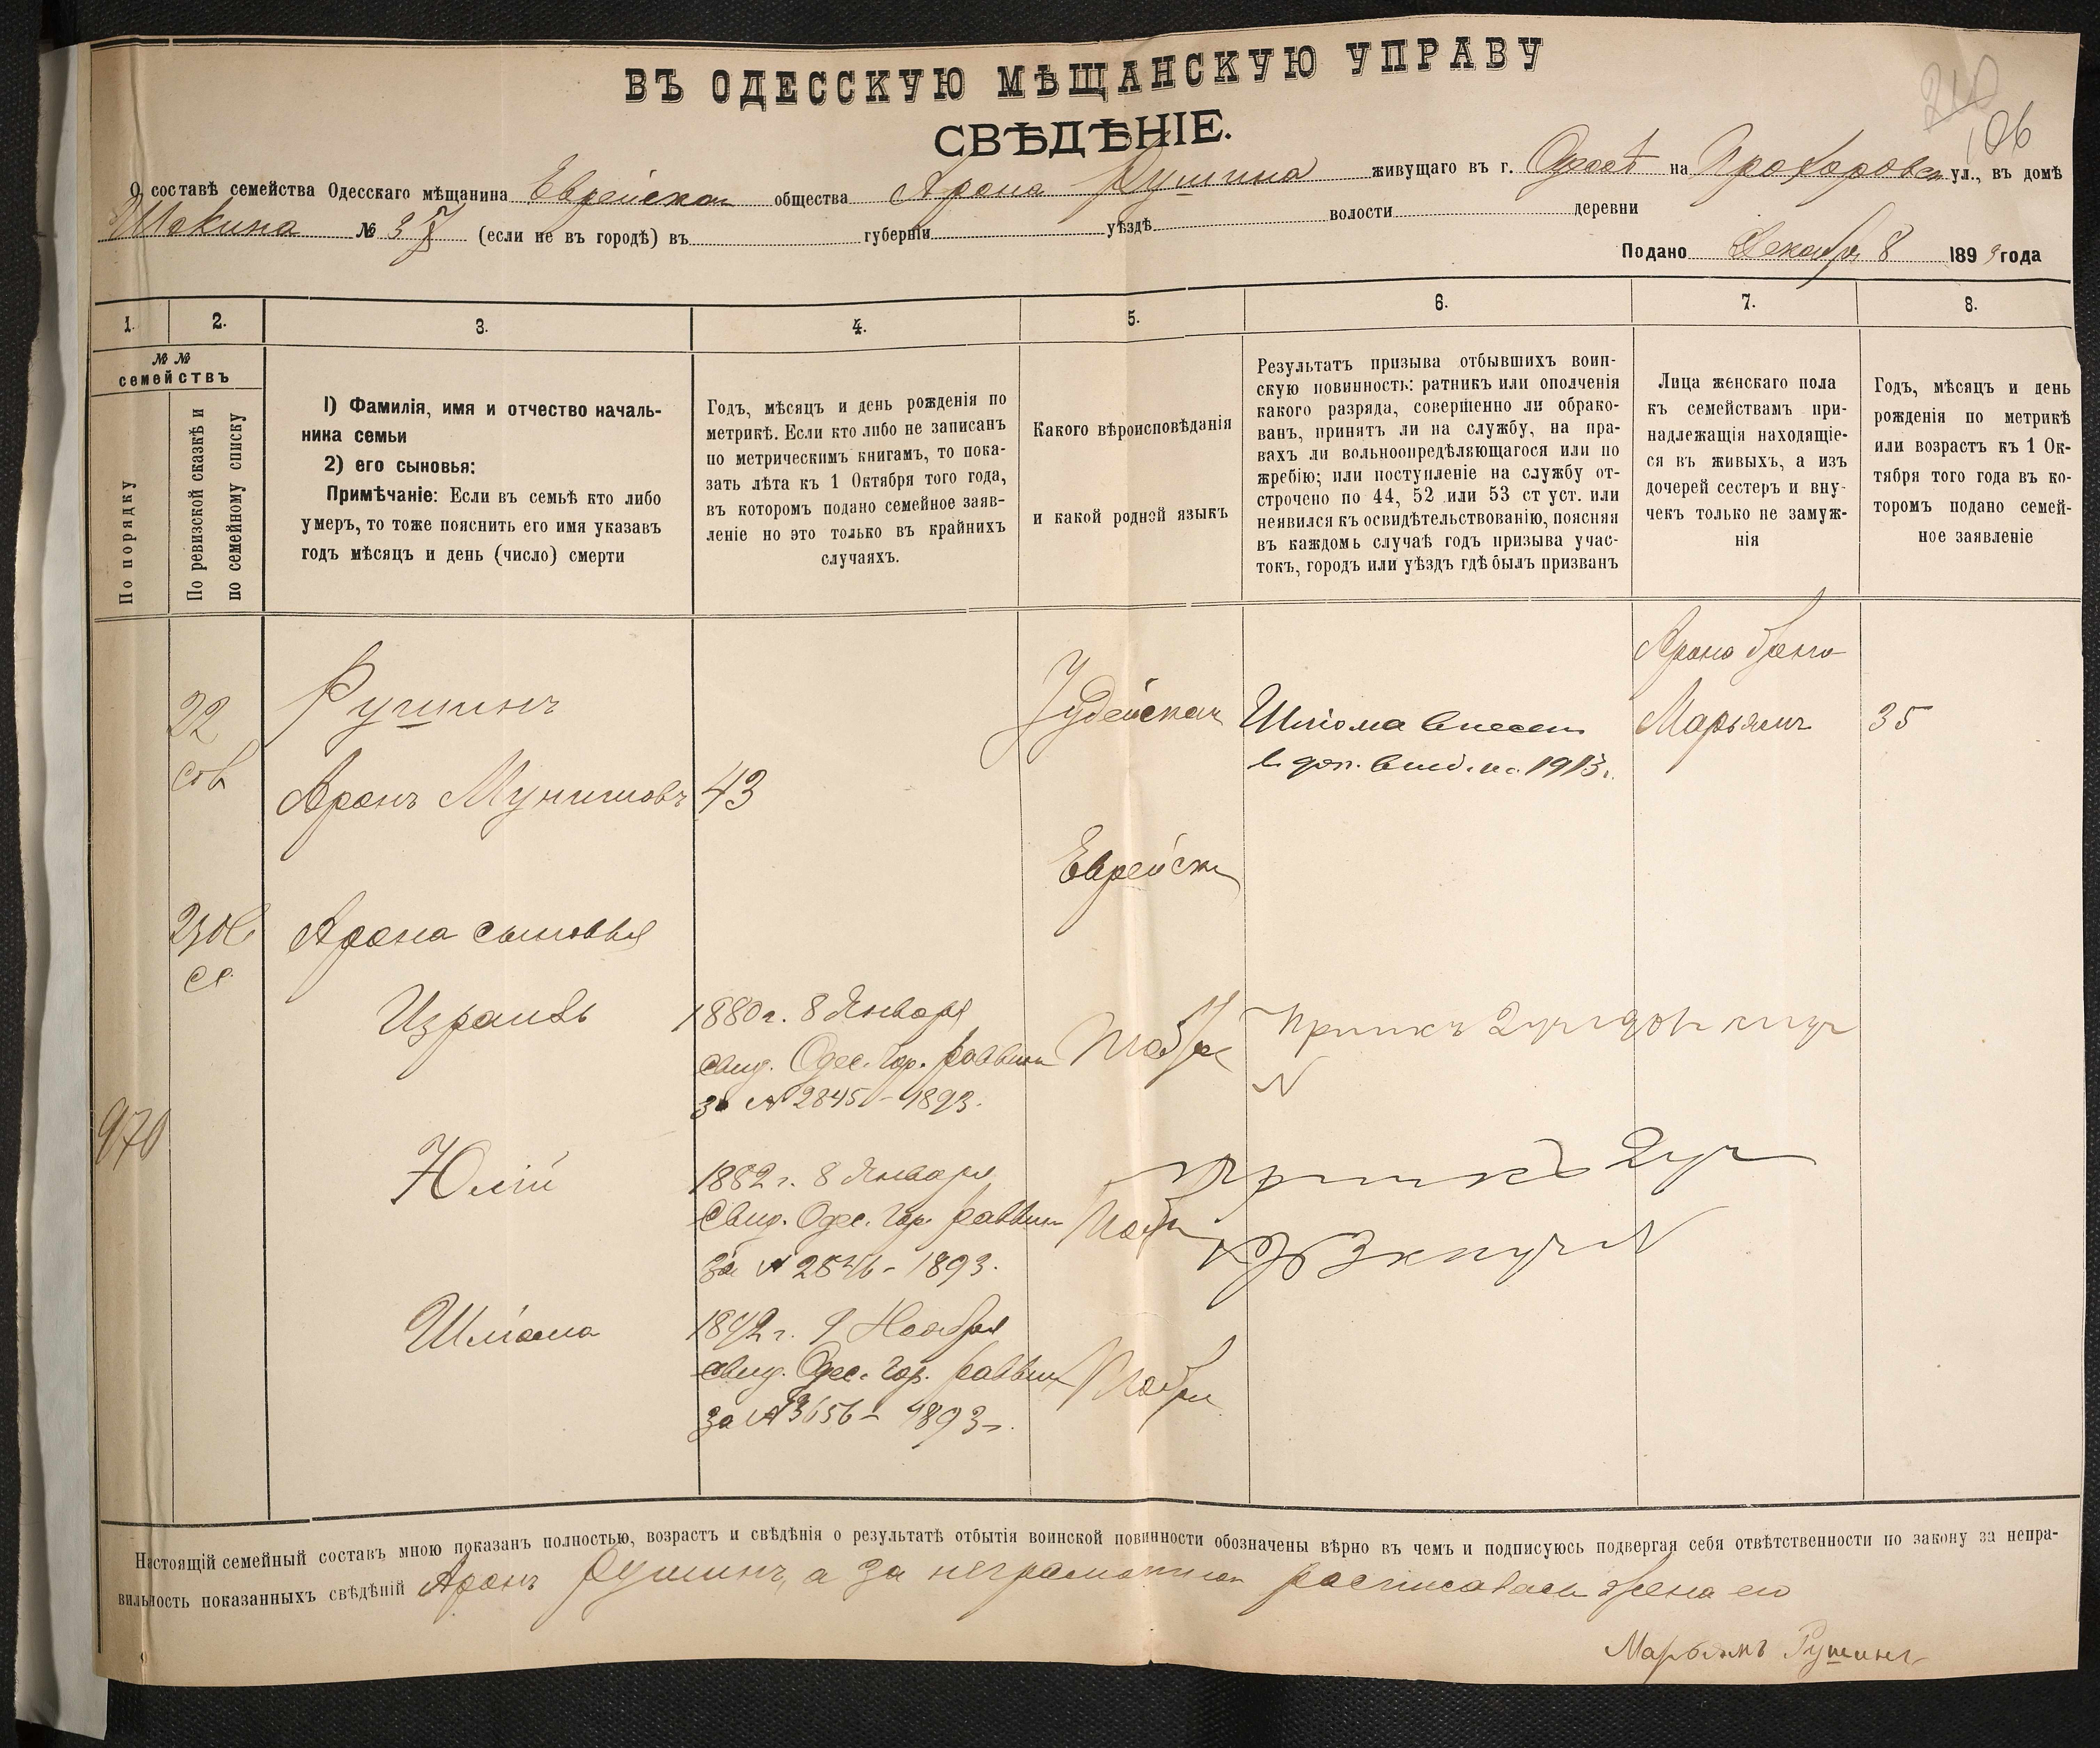 210
106
ВЪ ОДЕССКУЮ МѢЩАНСКУЮ УПРАВУ
СВѢДѢНІЕ.
О составѣ семейства Одесскаго мѣщанина Еврейскаго общества Арона Рушина живущаго въ г. Одессѣ на Прохоровск ул., въ домѣ
№ 37 (если не въ городѣ) въ губерніи уѣздѣ волости деревни
Подано Декабря 8 1893 года
1. 2. 3. 4. 5. 6. 7. 8.
№ №
семействъ
По порядку
По ревизской сказкѣ и
по семейному списку
1) Фамилія, имя и отчество началь-
ника семьи
2) его сыновья:
Примѣчаніе: Если въ семьѣ кто либо
умеръ, то тоже пояснить его имя указавъ
годъ мѣсяцъ и день (число) смерти
Годъ, мѣсяцъ и день рожденія по
метрикѣ. Если кто либо не записанъ
по метрическимъ книгамъ, то пока-
зать лѣта къ 1 Октября того года,
въ которомъ подано семейное заяв-
леніе но это только въ крайнихъ
случаяхъ.
Какого вѣроисповѣданія
и какой родной языкъ
Результатъ призыва отбывшихъ воин-
скую повинность: ратникъ или ополченія
какого разряда, совершенно ли обрако-
ванъ, принятъ ли на службу, на пра-
вахъ ли вольноопредѣляющагося или по
жребію; или поступленіе на службу от-
строчено по 44, 52 или 53 ст уст. или
неявился къ освидѣтельствованію, поясняя
въ каждомъ случаѣ годъ призыва учас-
токъ, городъ или уѣздъ гдѣ былъ призванъ
Лица женскаго пола
къ семействамъ при-
надлежащія находящіе-
ся въ живыхъ, а изъ
дочерей сестеръ и вну-
чекъ только не замуж-
нія
Годъ, мѣсяцъ и день
рожденія по метрикѣ
или возрастъ къ 1 Ок-
тября того года въ ко-
торомъ подано семей-
ное заявленіе
22
Рушинъ
Аронъ Мунишовъ 43
Іудейская
Еврейски
Шліома внесен
в доп. 1913 г.
Арона жена
Марьямъ 35
Арона сыновья
Израиль
1880 г. 8 Января
свид. Одес. Гор. раввин
за № 2845 - 1893.
970
Юлій
1882 г. 8 Января
Свид. Одес. Гор. раввин
за № 2846 - 1893.
Шліома
1892 г. 9 Ноября
свид. Одес. Гор. раввин
за № 3656 - 1893 г.
Настоящій семейный составъ мною показанъ полностью, возрастъ и свѣдѣнія о результатѣ отбытія воинской повинности обозначены вѣрно въ чемъ и подписуюсь подвергая себя отвѣтственности по закону за непра-
вильность показанныхъ свѣдѣній Аронъ Рушинъ, а за неграмотном росписалась жена его
Марьямъ Рушинъ